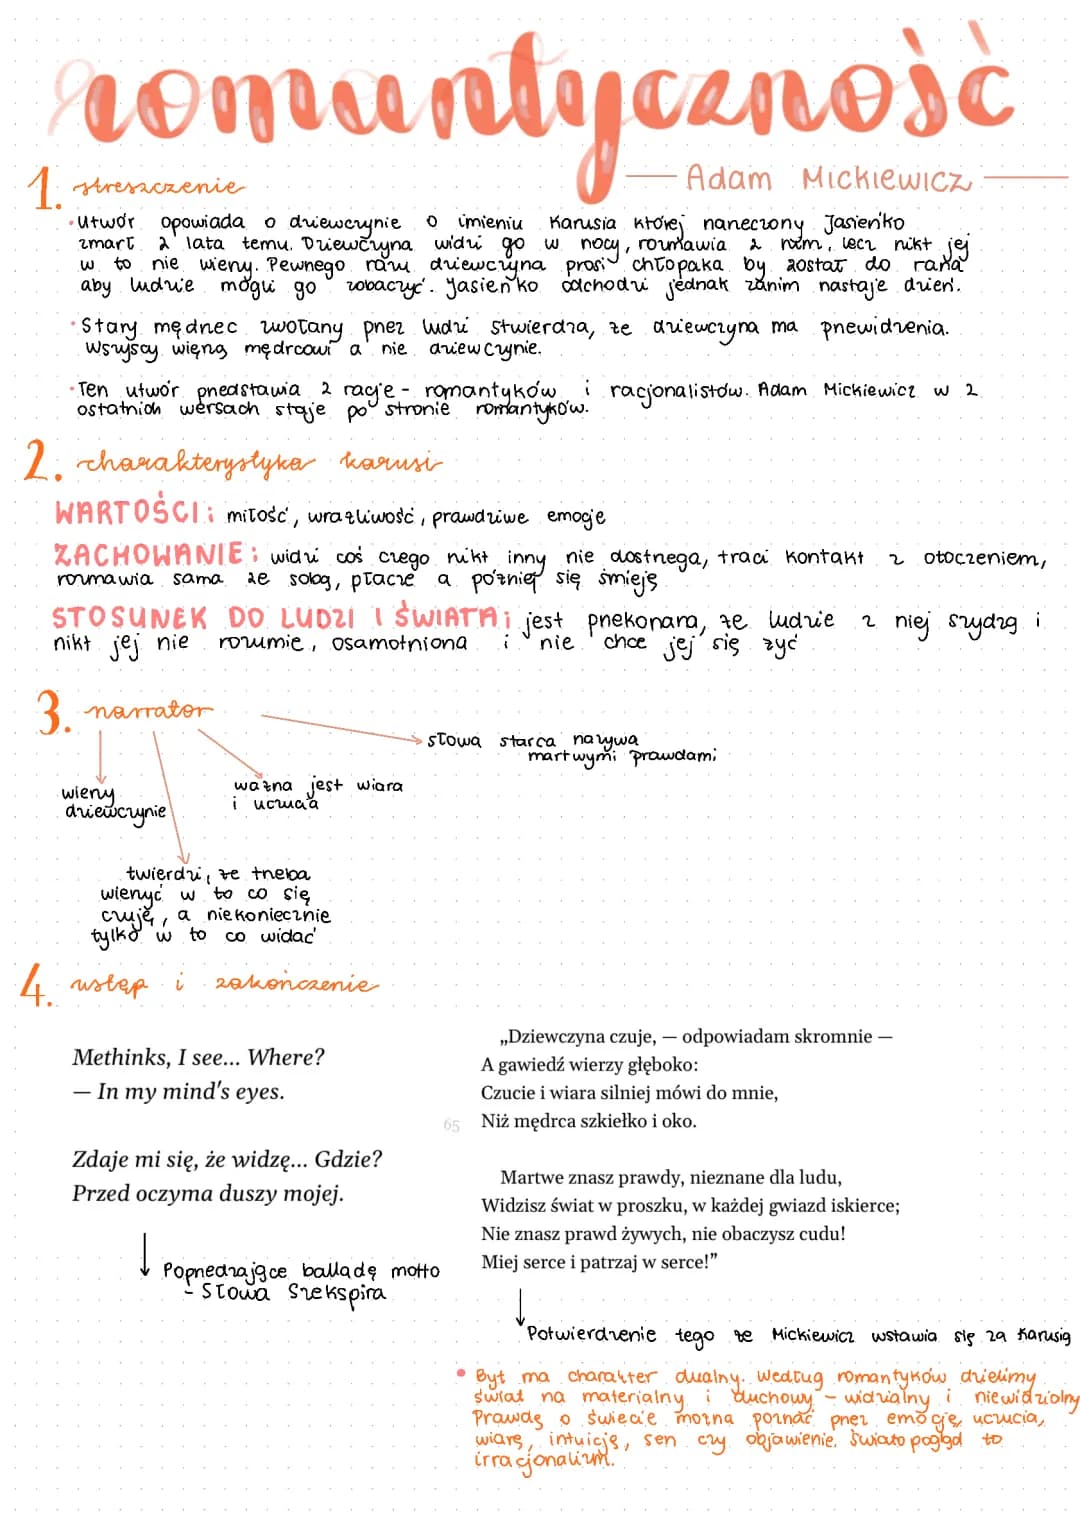 romantyczność
Adam Mickiewicz
1. streszczenie
• Utwór opowiada o dziewczynie o imieniu Karusia której narzeczony Jasieńko
zmarł 2 lata temu. Dziewczyna widzi go w nocy, rozmawia z nim, lecz nikt jej
w to nie wierzy. Pewnego razu dziewczyna prosi chłopaka by został do rana
aby ludzie mogli go zobaczyć. Jasieńko odchodzi jednak zanim nastaje dzień.
• Stary mędrzec zwołany przez ludzi stwierdza, że dziewczyna ma przewidzenia.
Wszyscy wierzą mędrcowi a nie dziewczynie.
• Ten utwór przedstawia 2 racje - romantyków i racjonalistów. Adam Mickiewicz w 2
ostatnich wersach staje po stronie romantyków.
2. charakterystyka karusi
WARTOŚCI: miłość, wrażliwość, prawdziwe emocje
ZACHOWANIE: widzi coś czego nikt inny nie dostrzega, traci kontakt z otoczeniem,
rozmawia sama ze sobą, płacze a później się śmieje
STOSUNEK DO LUDZI I ŚWIATA: jest przekonana, że ludzie z niej szydzą i
nikt jej nie rozumie, osamotniona i nie chce jej się żyć
3. narrator
słowa starca nazywa
martwymi prawdami
wierzy
dziewczynie
ważna jest wiara
i uczucia
twierdzi, że trzeba
wierzyć w to co się
czuję, a niekoniecznie
tylko w to co widać
4. wstęp i zakończenie
Methinks, I see... Where?
— In my mind's eyes.
Zdaje mi się, że widzę... Gdzie?
Przed oczyma duszy mojej.
Poprzedzające balladę motto
- Słowa Szekspira
„Dziewczyna czuje, — odpowiadam skromnie —
A gawiedź wierzy głęboko:
Czucie i wiara silniej mówi do mnie,
65 Niż mędrca szkiełko i oko.
Martwe znasz prawdy, nieznane dla ludu,
Widzisz świat w proszku, w każdej gwiazd iskierce;
Nie znasz prawd żywych, nie obaczysz cudu!
Miej serce i patrzaj w serce!”
Potwierdzenie tego że Mickiewicz wstawia się za Karusią
• Byt ma charakter dualny. Według romantyków dzielimy
świat na materialny i duchowy - widzialny i niewidzialny
Prawdę o świecie można poznać przez emocje, uczucia,
wiarę, intuicję, sen czy objawienie. Światopogląd to
irracjonalizm.